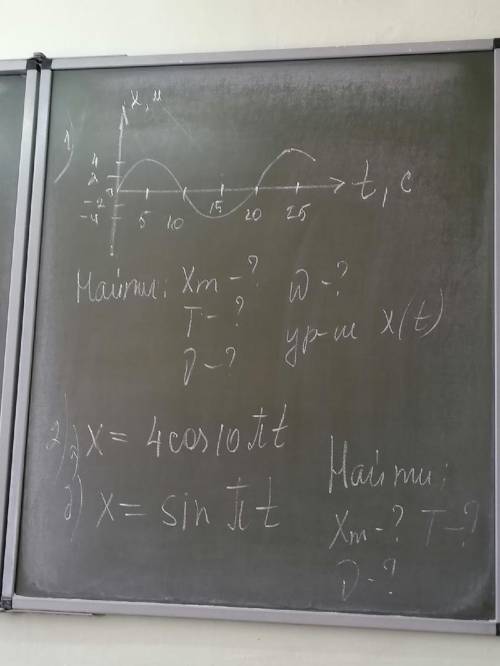 1)
x, м
4
2
0
-2
-4
5 10 15 20 25
t, с
Найти: Xm - ? ω - ?
T - ? ур-ие x(t)
ν - ?
2) а) x = 4cos10πt
б) x = sin πt
Найти:
Xm - ? T - ?
ν - ?